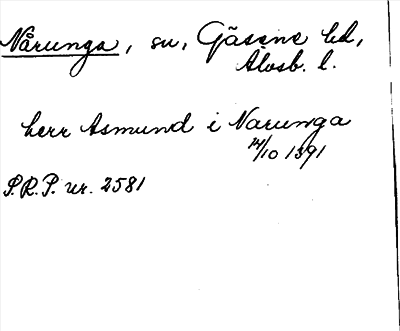 Nårunga, sn, Gäsene hd,
Älvsb. l.
herr Asmund i Narunga
14/10 1391
S.R.P. nr. 2581